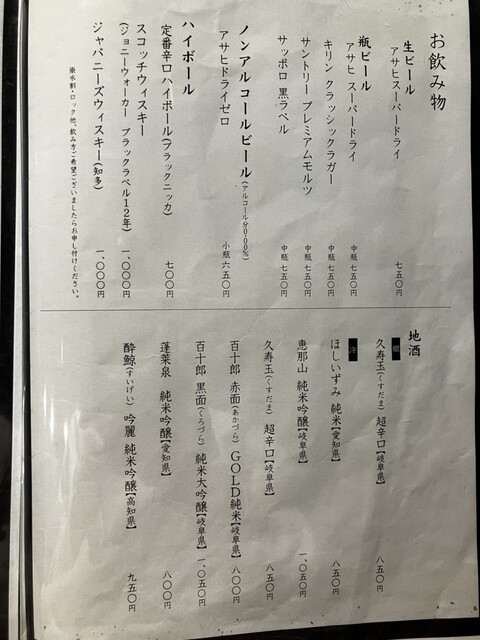 お飲み物
生ビール
アサヒスーパードライ 七五〇円
瓶ビール
アサヒ スーパードライ 中瓶 七五〇円
キリン クラッシックラガー 中瓶 七五〇円
サントリー プレミアムモルツ 中瓶 七五〇円
サッポロ 黒ラベル 中瓶 七五〇円
ノンアルコールビール(アルコール分0.00%)
アサヒドライゼロ 小瓶 六五〇円
ハイボール
定番辛口ハイボール(ブラックニッカ) 七〇〇円
スコッチウィスキー
(ジョニーウォーカー ブラックラベル12年) 一、〇〇〇円
ジャパニーズウィスキー(知多) 一、〇〇〇円
※水割・ロック他、飲み方ご希望ございましたらお申し付けください。
地酒
燗
久寿玉(くすだま) 超辛口【岐阜県】 八五〇円
冷
ほしいずみ 純米【愛知県】 八五〇円
恵那山 純米吟醸【岐阜県】 一、〇五〇円
久寿玉(くすだま) 超辛口【岐阜県】 八五〇円
百十郎 赤面(あかづら) GOLD純米【岐阜県】 八〇〇円
百十郎 黒面(くろづら) 純米大吟醸【岐阜県】 一、〇五〇円
蓬莱泉 純米吟醸【愛知県】 八〇〇円
酔鯨(すいげい) 吟麗 純米吟醸【高知県】 九五〇円